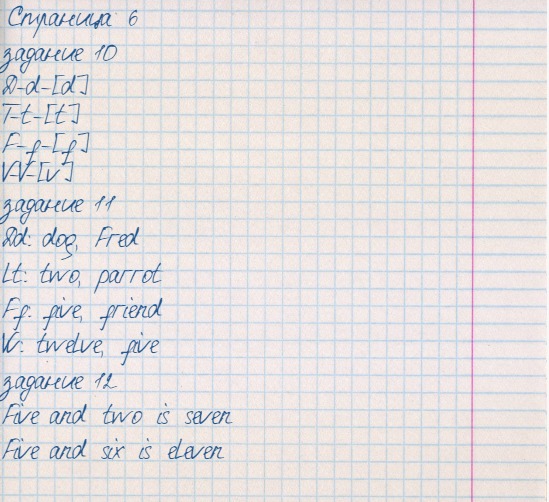 Страница 6
задание 10
D-d-[d]
T-t-[t]
F-f-[f]
V-V-[v]
задание 11
Dd: dog, Fred
Lt: two, parrot
Ff: five, friend
Vv: twelve, five
задание 12
Five and two is seven
Five and six is eleven